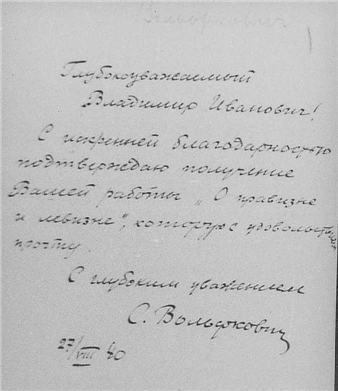 Вольфкович
Глубокоуважаемый
Владимир Иванович!
С искренней благодарностью
подтверждаю получение
Вашей работы „О правизне
и левизне", которую с удовольствием
прочту.
С глубоким уважением
С. Вольфкович
27/VIII 40